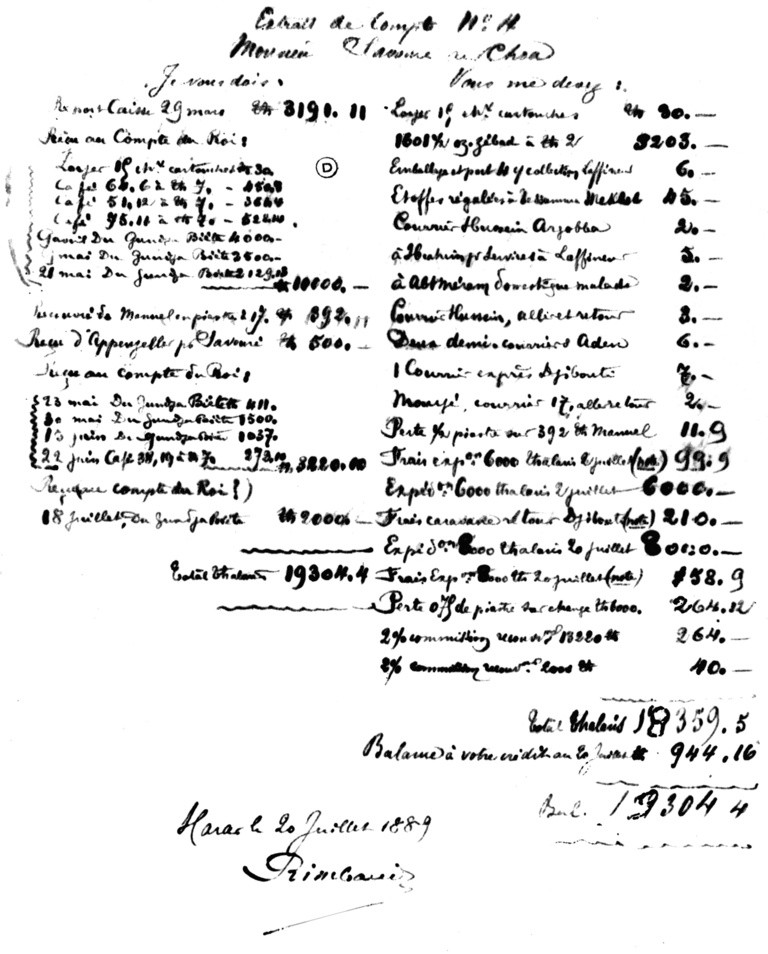 Extrait de Compte N° 4
Monsieur Savouré au Choa
Je vous dois :
Report Caisse 29 mars th 3191. 11
Reçu au Compte du Roi :
Loyer cartouches th 30
Café 64. 6 à th 7. –
Café 51. 12 à th 7. –
Café 75. 11 à th 7. –
9 avril Du Zunidja Biête 4000.–
mai Du Zunidja Biête 3500.–
21 mai Du Zunidja Biête 2129.
th 10000.–
Manuel en piastre à 17. th 392.
Reçu d'Appenzeller pr Savouré th 500. –
Reçu au compte du Roi :
23 mai Du Zunidja Biête th 411.
30 mai Du Zunidja Biête 1500.
13 juin Du Zunidja Biête 1037.
22 juin Café 38, 19 à th 7. 273.
th. 3220.00
Reçu au compte du Roi :
18 juillet, Du Zunidja Biête th 2000 –
Total thalaris 19304.4
Vous me devez :
Loyer cartouches th 30. –
1601 1/2 oz. zibad à th 2 3203. –
Emballage et port Laffineur 6. –
Etoffes régalées à Mekbeb 45. –
Courrier Hussein Argobba 2. –
à Ibrahim pr services à Laffineur 5. –
à Abt Mériam domestique malade 2. –
Courrier Hussein, aller et retour 3. –
Deux demi-courriers Aden 6. –
1 Courrier exprès Djibouti 7. –
courrier 17, aller retour 2. –
Perte 1/2 piastre sur 392 th Manuel 11.9
Frais expon 6000 thalaris 2 juillet (note) 99.9
Expédon 6000 thalaris 2 juillet 6000. –
Frais caravane retour Djibouti (note) 210. –
Expédon 8000 thalaris 20 juillet 8000. –
Frais Expon 8000 th 20 juillet (note) 158. 9
Perte de piastre sur change th 6000. 264.12
2% commission recouvt 13220 th 264. –
2% commission recouvt 2000 th 40. –
Total thalaris 18359.5
Balance à votre crédit au 20 Juillet th 944.16
Bal. 19304 4
D
Harar le 20 Juillet 1889
Rimbaud